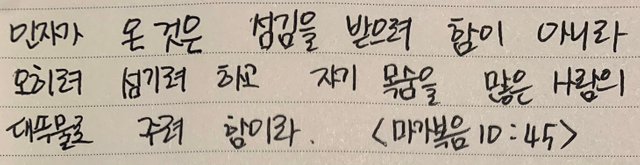 인자가 온 것은 섬김을 받으려 함이 아니라
오히려 섬기려 하고 자기 목숨을 많은 사람의
대속물로 주려 함이라. <마가복음 10:45>